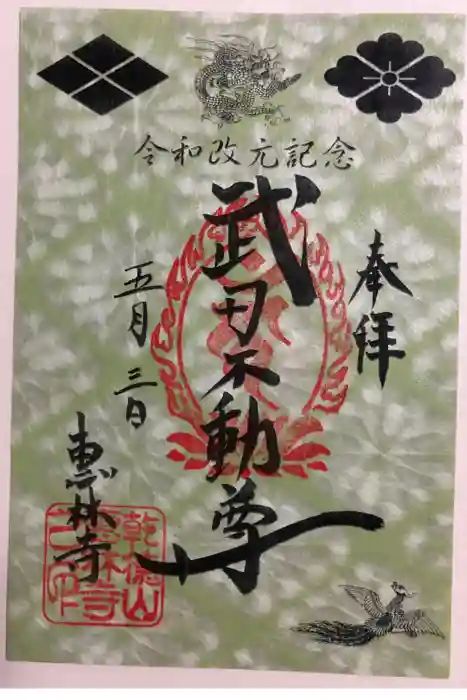 令和改元記念
奉拝
武田不動尊
五月三日
恵林寺
乾徳山
恵林寺
之印